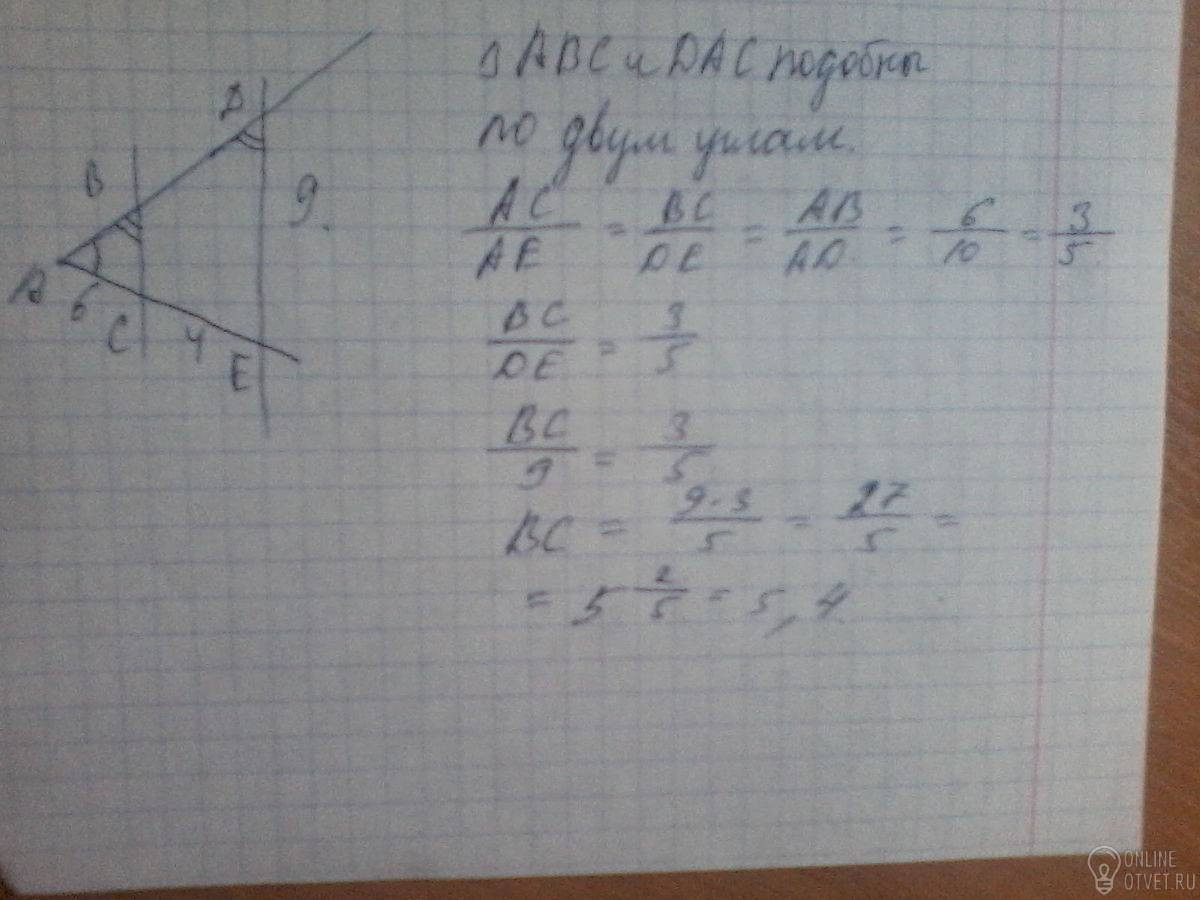 Δ ABC и DAC подобны
по двум углам.
AC/AE = BC/DE = AB/AD = 6/10 = 3/5
BC/DE = 3/5
BC/9 = 3/5
BC = 9·3/5 = 27/5 =
= 5 2/5 = 5,4
D
B
9.
A
6
C
4
E
ONLINE
OTVET.RU